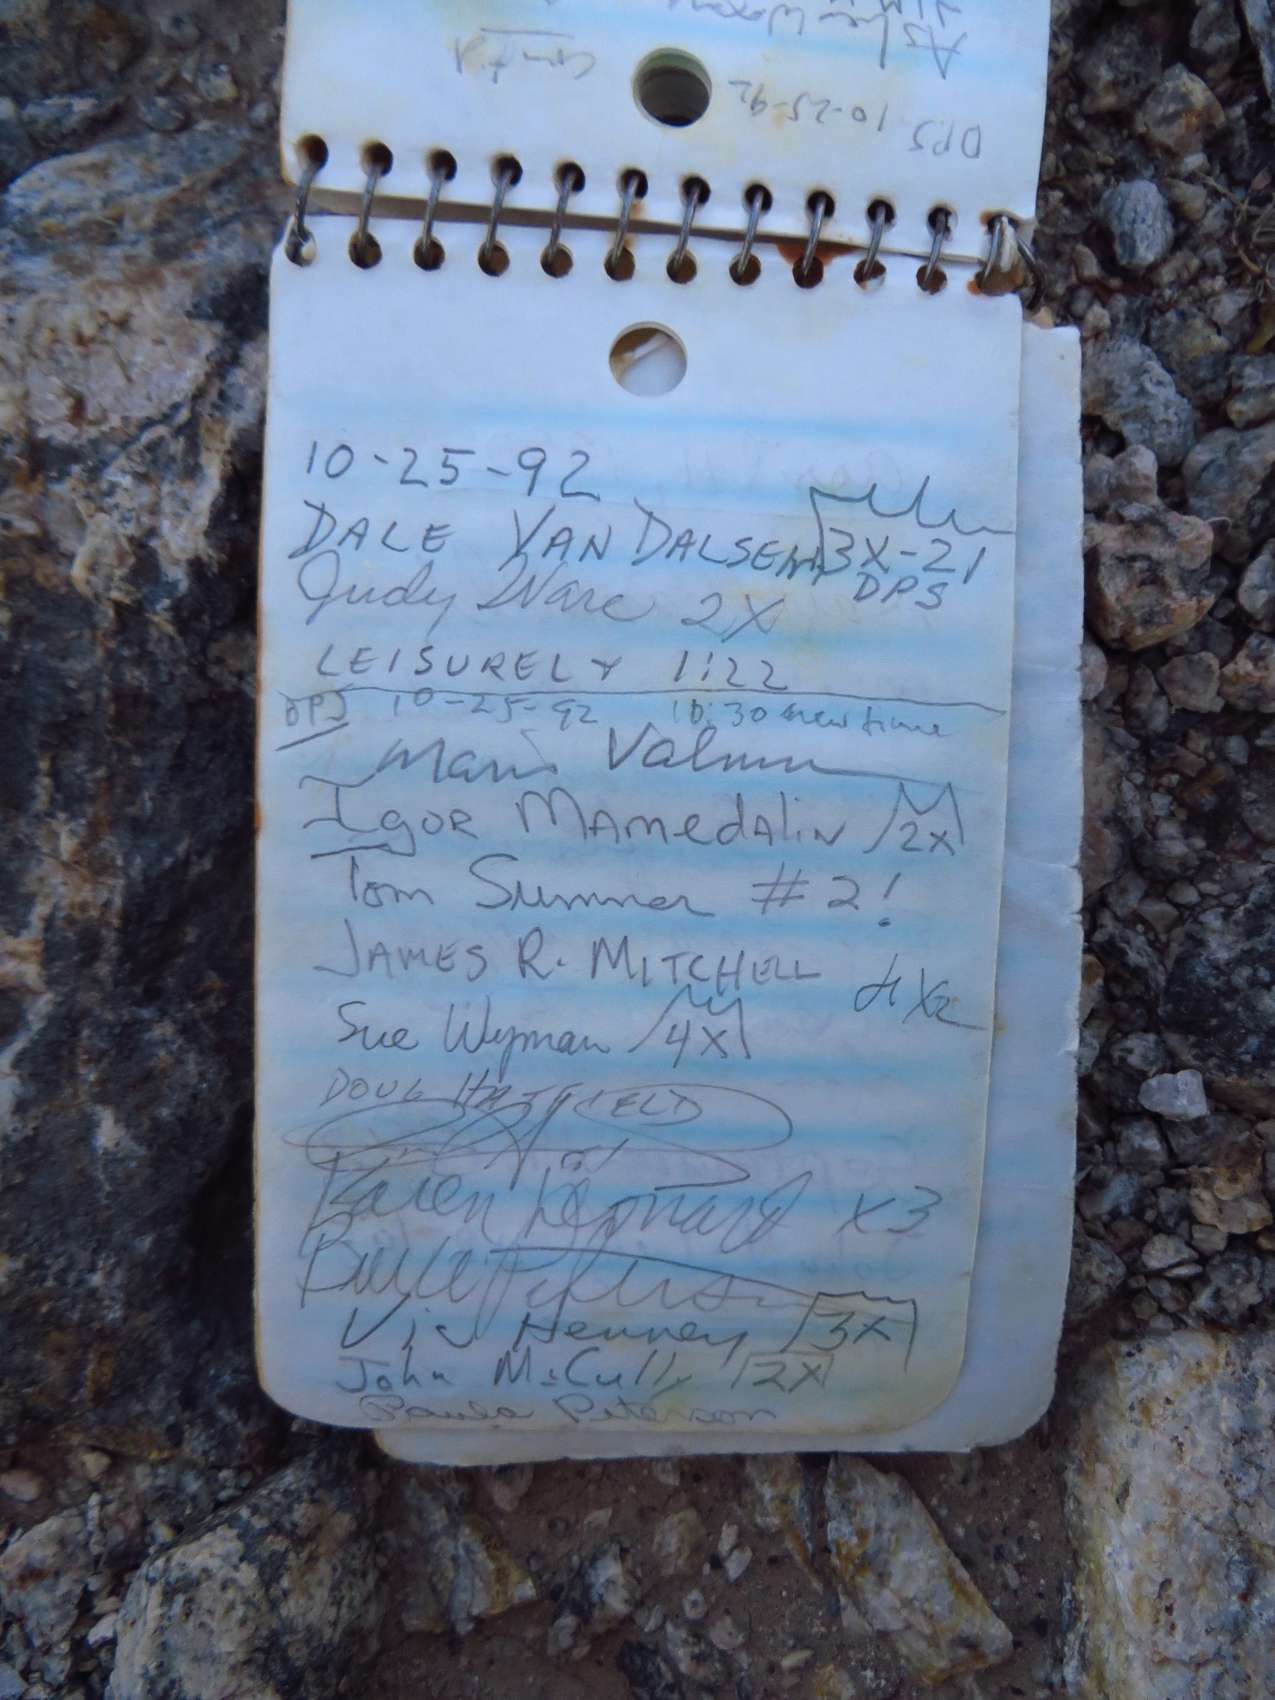 DPS 10-25-92 Cont'd
10-25-92
DALE VAN DALSEM 3X-21
DPS
Judy Ware 2X
LEISURELY 1:22
DPS 10-25-92 10:30 new time
Maris Valkass
Igor Mamedalin 2x
Tom Sumner #2!
JAMES R. MITCHELL
Sue Wyman 4X
DOUG HATFIELD
Karen Leonard X3
Vic Henney 3x
John McCully 2X
Paula Peterson